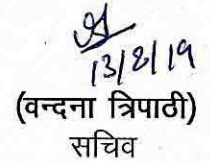 13/8/19
(वन्दना त्रिपाठी)
सचिव